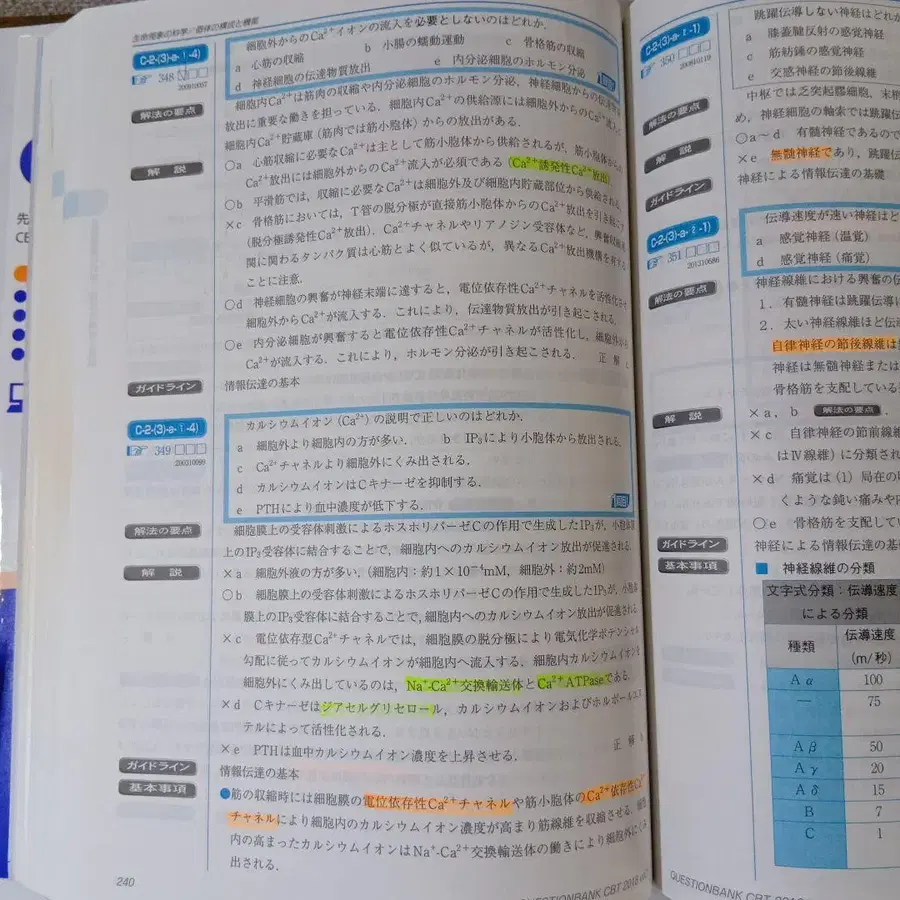 生命現象の科学/個体の構成と機能
C-2-(3)-a-ⅰ-4)
348
200910057
細胞外からのCa²⁺イオンの流入を必要としないのはどれか.
a 心筋の収縮 b 小腸の蠕動運動 c 骨格筋の収縮
d 神経細胞の伝達物質放出 e 内分泌細胞のホルモン分泌
解法の要点
細胞内Ca²⁺は筋肉の収縮や内分泌細胞のホルモン分泌, 神経細胞からの伝達物質
放出に重要な働きを担っている. 細胞内Ca²⁺の供給源には細胞外からのCa²⁺流入と,
細胞内Ca²⁺貯蔵庫 (筋肉では筋小胞体) からの放出がある.
解説
○a 心筋収縮に必要なCa²⁺は主として筋小胞体から供給されるが, 筋小胞体からの
Ca²⁺放出には細胞外からのCa²⁺流入が必須である (Ca²⁺誘発性Ca²⁺放出)
○b 平滑筋では, 収縮に必要なCa²⁺は細胞外及び細胞内貯蔵部位から供給される.
×c 骨格筋においては, T管の脱分極が直接筋小胞体からのCa²⁺放出を引き起こす
(脱分極誘発性Ca²⁺放出). Ca²⁺チャネルやリアノジン受容体など, 興奮収縮連
関に関わるタンパク質は心筋とよく似ているが, 異なるCa²⁺放出機構を有する
ことに注意.
○d 神経細胞の興奮が神経末端に達すると, 電位依存性Ca²⁺チャネルを活性化させ
細胞外からCa²⁺が流入する. これにより, 伝達物質放出が引き起こされる.
○e 内分泌細胞が興奮すると電位依存性Ca²⁺チャネルが活性化し, 細胞外から
Ca²⁺が流入する. これにより, ホルモン分泌が引き起こされる. 正解
ガイドライン
情報伝達の基本
C-2-(3)-a-ⅰ-4)
349
カルシウムイオン (Ca²⁺) の説明で正しいのはどれか.
a 細胞外より細胞内の方が多い. b IP₃により小胞体から放出される.
c Ca²⁺チャネルより細胞外にくみ出される.
d カルシウムイオンはCキナーゼを抑制する.
e PTHにより血中濃度が低下する.
解法の要点
細胞膜上の受容体刺激によるホスホリパーゼCの作用で生成したIP₃が, 小胞体
上のIP₃受容体に結合することで, 細胞内へのカルシウムイオン放出が促進される.
解説
×a 細胞外液の方が多い. (細胞内:約1×10⁻⁴mM, 細胞外:約2mM)
○b 細胞膜上の受容体刺激によるホスホリパーゼCの作用で生成したIP₃が, 小胞体
膜上のIP₃受容体に結合することで, 細胞内へのカルシウムイオン放出が促進される
×c 電位依存型Ca²⁺チャネルでは, 細胞膜の脱分極により電気化学ポテンシャル
勾配に従ってカルシウムイオンが細胞内へ流入する. 細胞内カルシウムイオンを
細胞外にくみ出しているのは, Na⁺-Ca²⁺交換輸送体とCa²⁺ATPaseである.
×d Cキナーゼはジアセルグリセロール, カルシウムイオンおよびホルボールエス
テルによって活性化される.
×e PTHは血中カルシウムイオン濃度を上昇させる. 正解 b
ガイドライン
情報伝達の基本
基本事項
●筋の収縮時には細胞膜の電位依存性Ca²⁺チャネルや筋小胞体のCa²⁺依存性Ca²⁺
チャネルにより細胞内のカルシウム濃度が高まり筋線維を収縮させる. 細胞
内の高まったカルシウムイオンはNa⁺-Ca²⁺交換輸送体の働きにより細胞外にくみ
出される.
240
QUESTIONBANK CBT 2018
C-2-(3)-a-ⅰ-1)
350
200810119
跳躍伝導しない神経はどれか
a 膝蓋腱反射の感覚神経
c 筋紡錘の感覚神経
e 交感神経の節後線維
解法の要点
中枢では乏突起膠細胞, 末梢
め, 神経細胞の軸索では跳躍伝
解説
○a~d 有髄神経であるので
×e 無髄神経であり, 跳躍伝
ガイドライン
神経による情報伝達の基礎
C-2-(3)-a-ⅰ-1)
351
201310686
伝導速度が速い神経はど
a 感覚神経 (温覚)
d 感覚神経 (痛覚)
解法の要点
神経線維における興奮の伝
1. 有髄神経は跳躍伝導に
2. 太い神経線維ほど伝導
自律神経の節後線維は無
神経は無髄神経または
骨格筋を支配している
解説
×a, b 解法の要点.
×c 自律神経の節前線維
はⅣ線維) に分類され
×d 痛覚は (1) 局在の
くような鈍い痛みや内
○e 骨格筋を支配してい
ガイドライン
神経による情報伝達の基礎
基本事項
■ 神経線維の分類
文字式分類:伝導速度
による分類
種類 伝導速度 (m/秒)
Aα 100
― 75
Aβ 50
Aγ 20
Aδ 15
B 7
C 1
QUESTIONBANK CBT